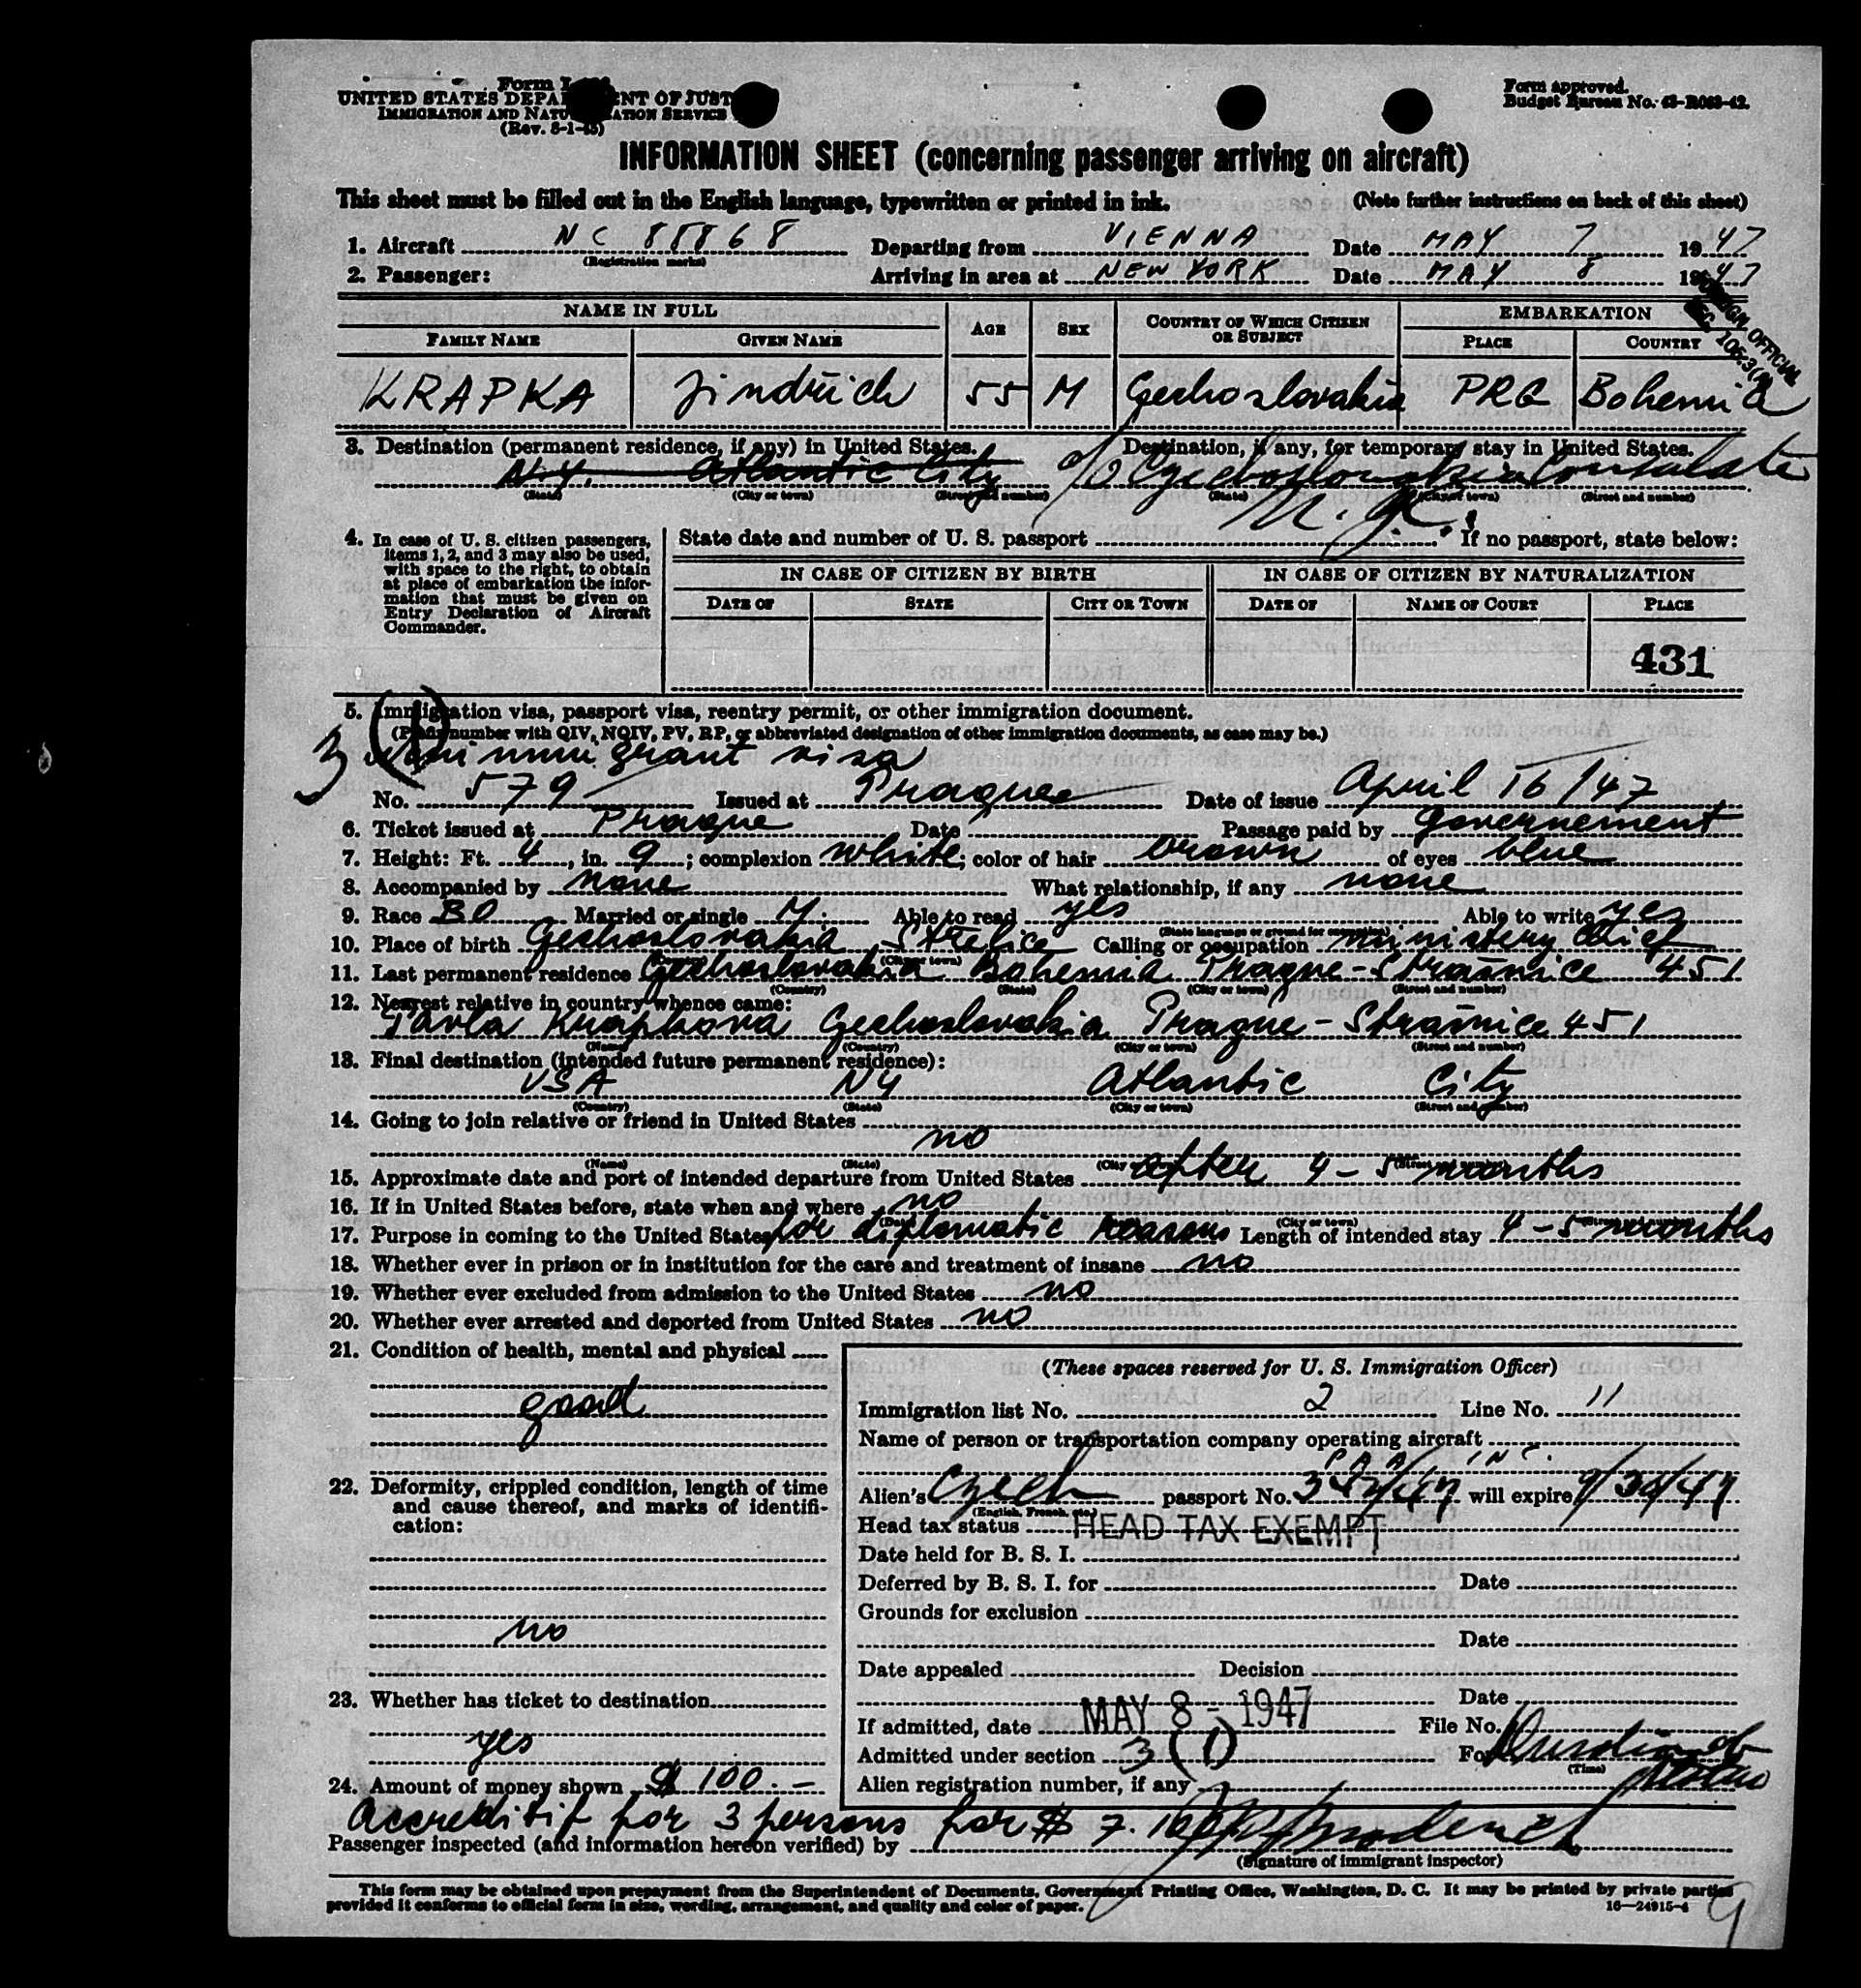 Form I-
UNITED STATES DEPA ENT OF JUST
IMMIGRATION AND NATU ATION SERVICE
(Rev. 8-1-45)
Form approved.
Budget Bureau No. 43-R063-42.
INFORMATION SHEET (concerning passenger arriving on aircraft)
This sheet must be filled out in the English language, typewritten or printed in ink. (Note further instructions on back of this sheet)
1. Aircraft NC 88868 Departing from VIENNA Date MAY 7 1947
(Registration marks)
2. Passenger: Arriving in area at NEW YORK Date MAY 8 1947
FOREIGN OFFICIAL
SEC. 105.3
NAME IN FULL AGE SEX COUNTRY OF WHICH CITIZEN OR SUBJECT EMBARKATION
FAMILY NAME GIVEN NAME PLACE COUNTRY
KRAPKA Jindřich 55 M Czechoslovakia PRG Bohemia
3. Destination (permanent residence, if any) in United States. Destination, if any, for temporary stay in United States.
N.Y. Atlantic City c/o Czechoslovakia Consulate
(State) (City or town) (Street and number) (State) (City or town) (Street and number)
N.Y.
4. In case of U. S. citizen passengers, items 1, 2, and 3 may also be used, with space to the right, to obtain at place of embarkation the information that must be given on Entry Declaration of Aircraft Commander.
State date and number of U. S. passport If no passport, state below:
IN CASE OF CITIZEN BY BIRTH IN CASE OF CITIZEN BY NATURALIZATION
DATE OF STATE CITY OR TOWN DATE OF NAME OF COURT PLACE
431
5. Immigration visa, passport visa, reentry permit, or other immigration document.
(Prefix number with QIV, NQIV, PV, RP, or abbreviated designation of other immigration documents, as case may be.)
3 (1) immigrant visa
No. 579 Issued at Prague Date of issue April 16/47
6. Ticket issued at Prague Date Passage paid by Governement
7. Height: Ft. 4, in. 9; complexion white; color of hair brown of eyes blue
8. Accompanied by none What relationship, if any none
9. Race BO Married or single M. Able to read yes Able to write yes
(State language or ground for exemption)
10. Place of birth Czechoslovakia, Střelice Calling or occupation ministery chief
(Country) (City or town)
11. Last permanent residence Czechoslovakia Bohemia Prague-Strašnice 451
(Country) (State) (City or town) (Street and number)
12. Nearest relative in country whence came:
Pavla Krapkova Czechoslovakia Prague-Strašnice 451
(Name) (Country) (City or town) (Street and number)
13. Final destination (intended future permanent residence):
USA NY Atlantic City
(Country) (State) (City or town) (Street and number)
14. Going to join relative or friend in United States
no
(Name) (State) (City or town) (Street and number)
15. Approximate date and port of intended departure from United States after 4-5 months
16. If in United States before, state when and where no
(Date) (City or town) (Street and number)
17. Purpose in coming to the United States for diplomatic reasons Length of intended stay 4-5 months
18. Whether ever in prison or in institution for the care and treatment of insane no
19. Whether ever excluded from admission to the United States no
20. Whether ever arrested and deported from United States no
21. Condition of health, mental and physical
good
22. Deformity, crippled condition, length of time and cause thereof, and marks of identification:
no
23. Whether has ticket to destination
yes
24. Amount of money shown $ 100.-
(These spaces reserved for U. S. Immigration Officer)
Immigration list No. 2 Line No. 11
Name of person or transportation company operating aircraft
P A A, INC.
Alien's Czech passport No. will expire
(English, French, etc.)
Head tax status HEAD TAX EXEMPT
Date held for B. S. I.
Deferred by B. S. I. for Date
Grounds for exclusion
Date
Date appealed Decision
Date
If admitted, date MAY 8 - 1947 File No.
Admitted under section 3 (1) For
(Time)
Alien registration number, if any
Accreditif for 3 persons for $ 7.
Passenger inspected (and information hereon verified) by
(Signature of immigrant inspector)
This form may be obtained upon prepayment from the Superintendent of Documents, Government Printing Office, Washington, D. C. It may be printed by private parties
provided it conforms to official form in size, wording, arrangement, and quality and color of paper. 16—24915-4
9